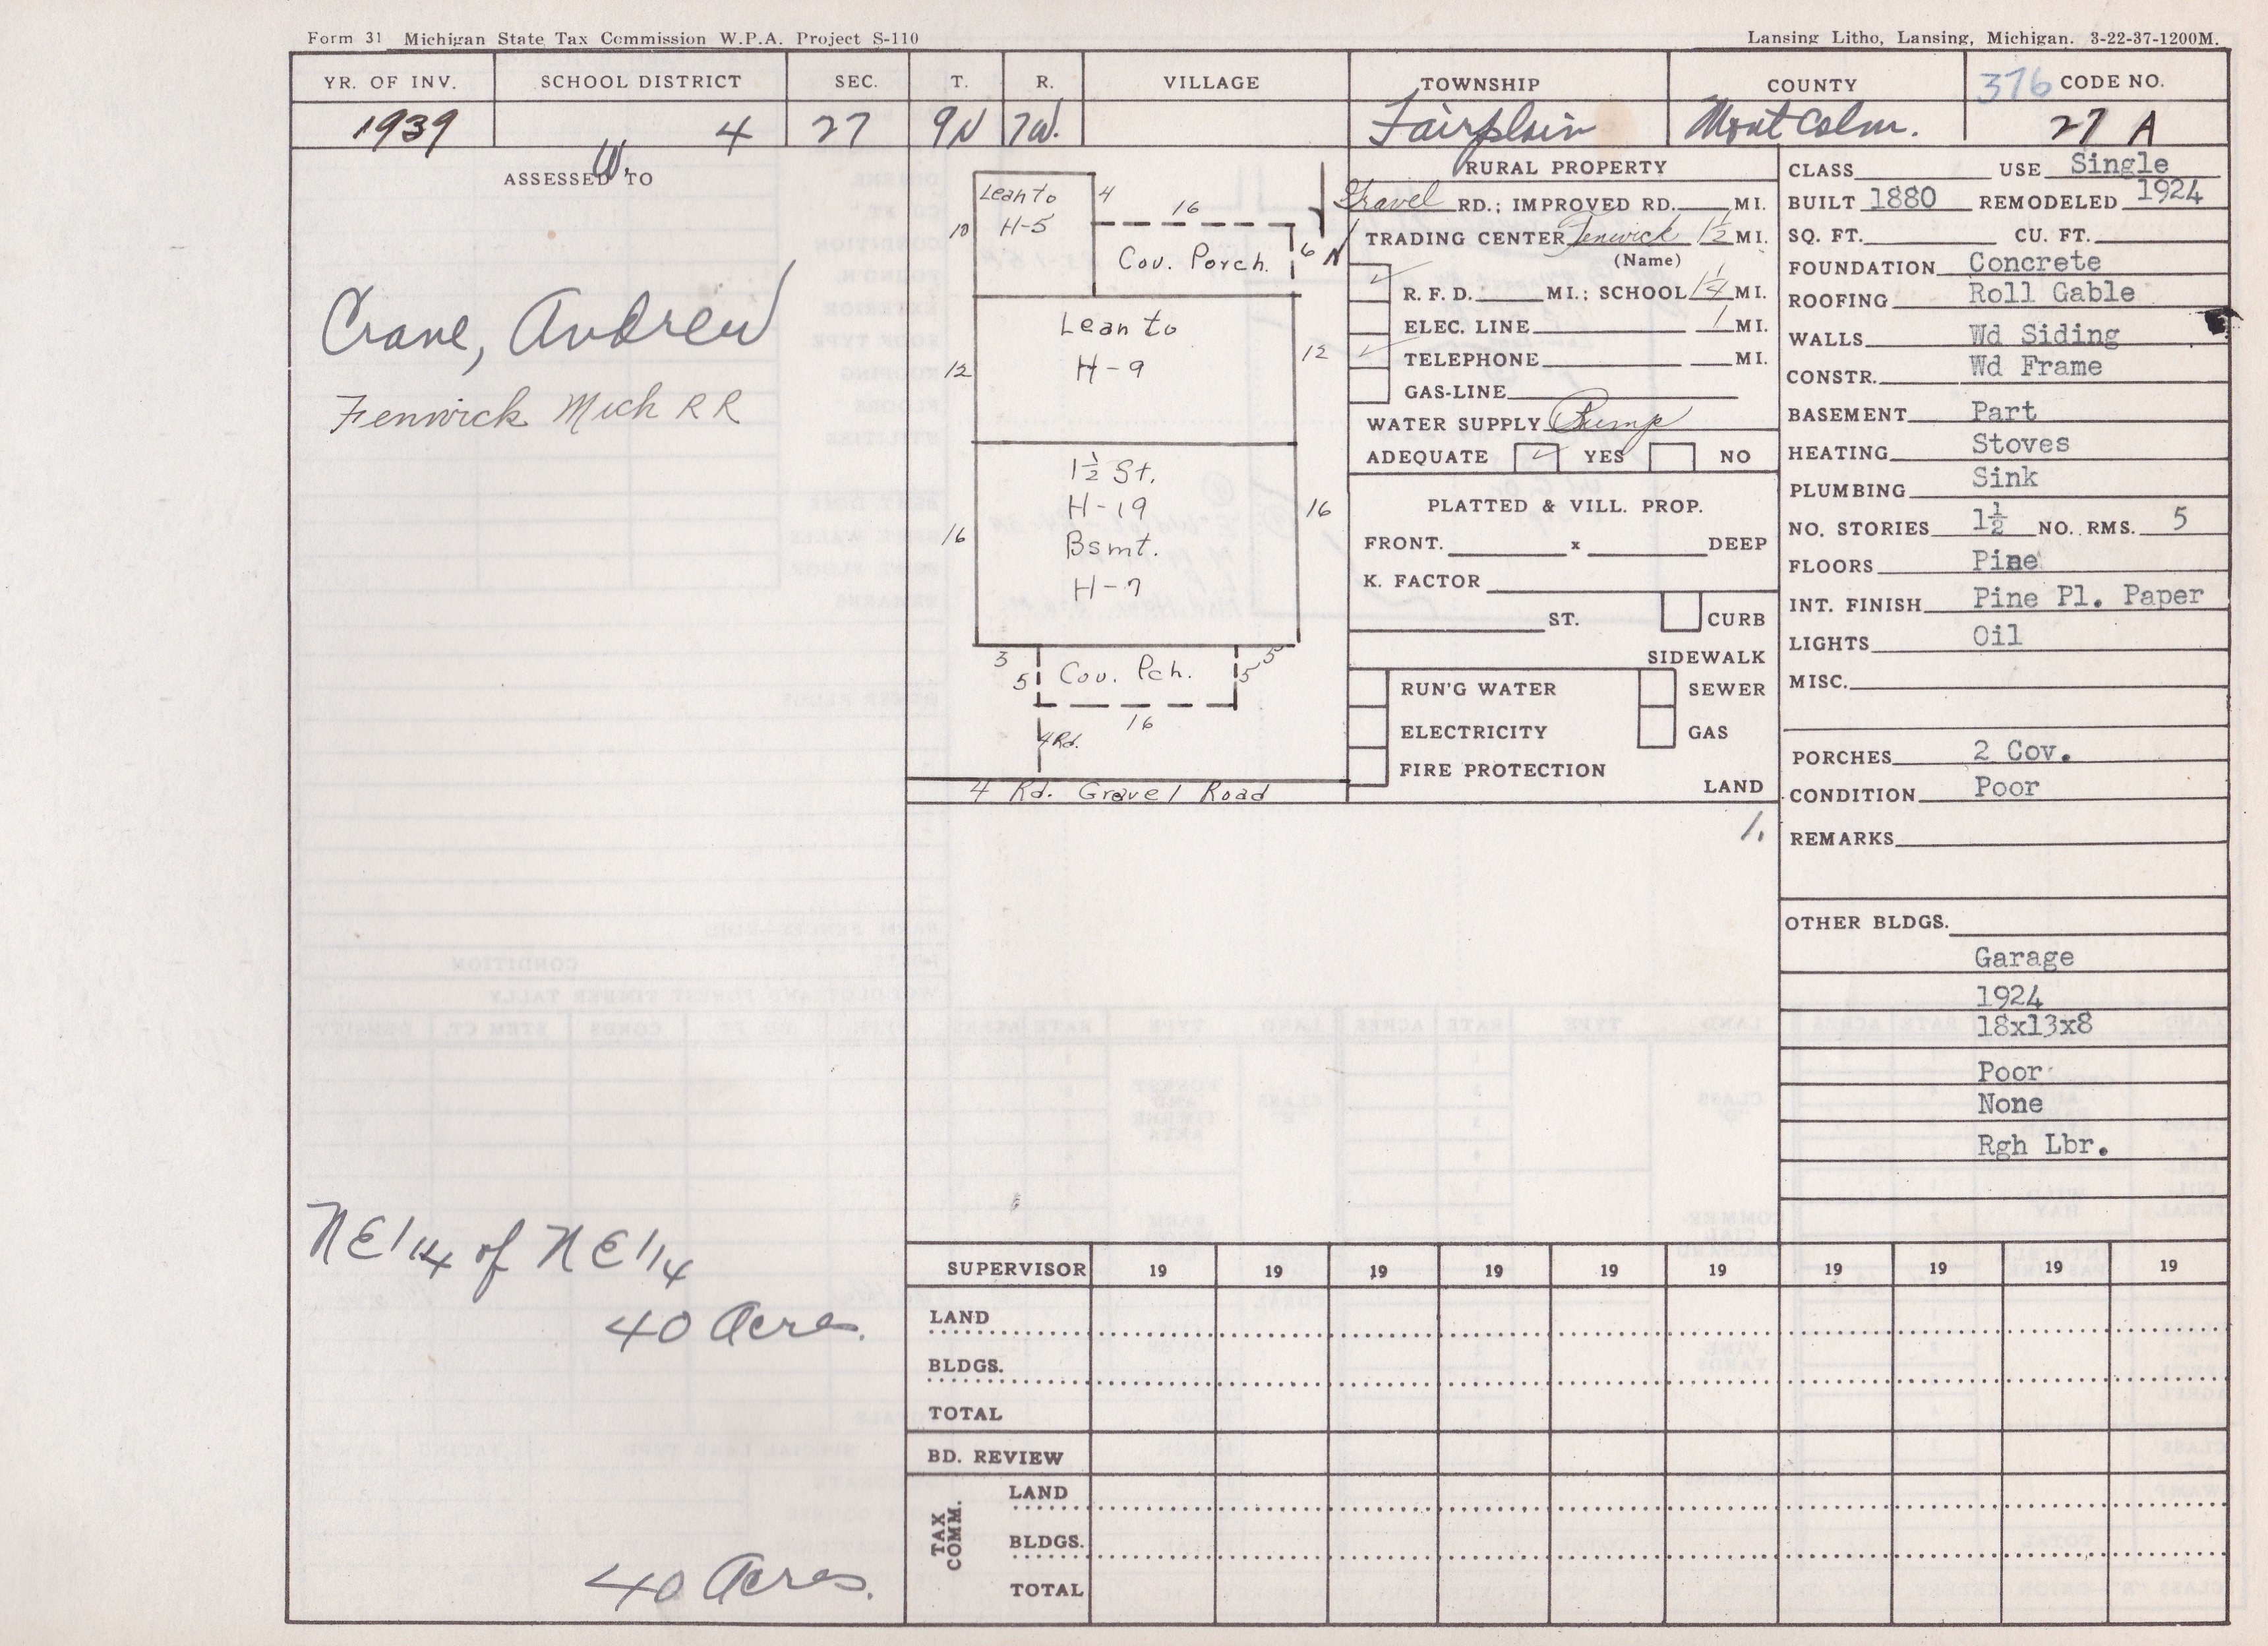 Form 31 Michigan State Tax Commission W.P.A. Project S-110
Lansing Litho, Lansing, Michigan. 3-22-37-1200M.
YR. OF INV. SCHOOL DISTRICT SEC. T. R. VILLAGE TOWNSHIP COUNTY 376 CODE NO.
1939 4 27 9N 7W. Fairplain Montcalm. 27 A
W.
ASSESSED TO
Crane, Andrew
Fenwick Mich RR
NE 1/4 of NE 1/4
40 Acres.
40 Acres.
Lean to 4
H-5 16
10 Cov. Porch. 6 N
Lean to
12 H-9 12
1½ St.
H-19
16 Bsmt. 16
H-7
3 5
5 Cov. Pch. 5
16
4 Rd.
4 Rd. Gravel Road
RURAL PROPERTY
Gravel RD.; IMPROVED RD. MI.
TRADING CENTER Fenwick 1½ MI.
(Name)
✓ R. F. D. MI.; SCHOOL 1¼ MI.
ELEC. LINE 1 MI.
✓ TELEPHONE MI.
GAS-LINE
WATER SUPPLY Pump
ADEQUATE ✓ YES NO
PLATTED & VILL. PROP.
FRONT. x DEEP
K. FACTOR
ST. CURB
SIDEWALK
RUN'G WATER SEWER
ELECTRICITY GAS
FIRE PROTECTION
LAND
1.
CLASS USE Single
BUILT 1880 REMODELED 1924
SQ. FT. CU. FT.
FOUNDATION Concrete
ROOFING Roll Gable
WALLS Wd Siding
CONSTR. Wd Frame
BASEMENT Part
HEATING Stoves
PLUMBING Sink
NO. STORIES 1½ NO. RMS. 5
FLOORS Pine
INT. FINISH Pine Pl. Paper
LIGHTS Oil
MISC.
PORCHES 2 Cov.
CONDITION Poor
REMARKS
OTHER BLDGS.
Garage
1924
18x13x8
Poor
None
Rgh Lbr.
SUPERVISOR 19 19 19 19 19 19 19 19 19 19
LAND
BLDGS.
TOTAL
BD. REVIEW
TAX COMM.
LAND
BLDGS.
TOTAL